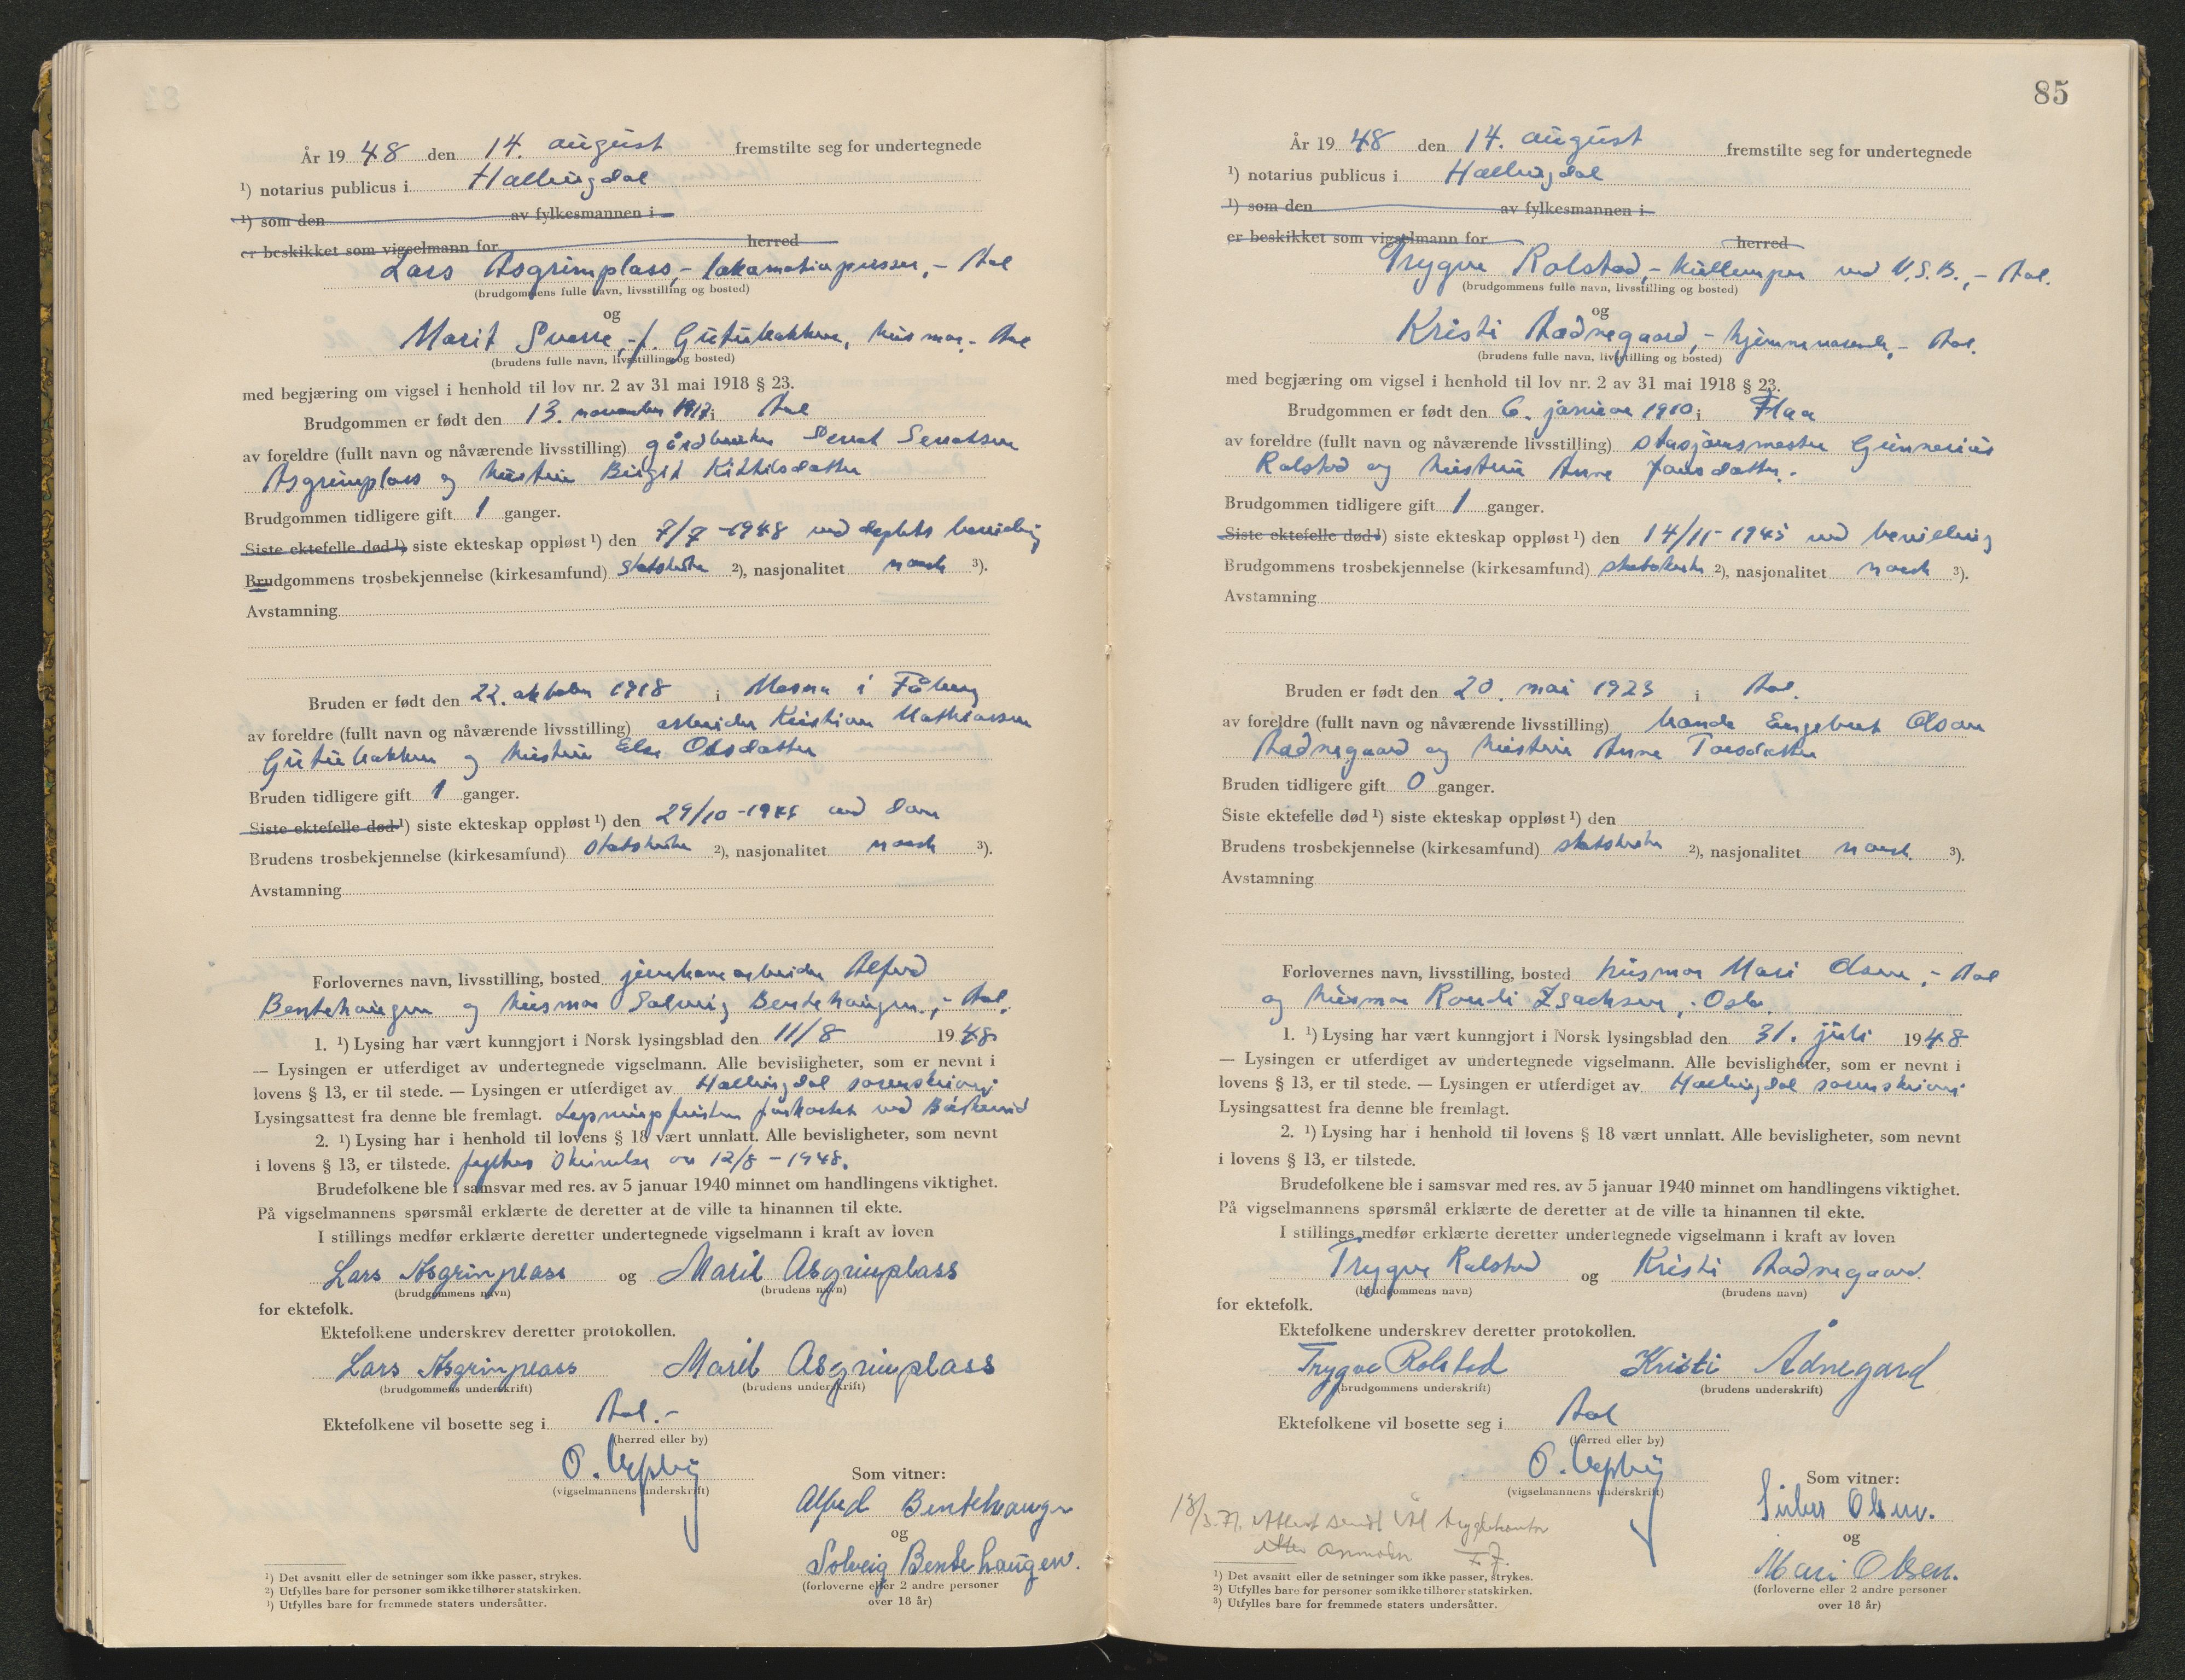 År 19 48 den 14. august fremstilte seg for undertegnede
¹) notarius publicus i Hallingdal
¹) som den av fylkesmannen i
er beskikket som vigselmann for herred
Lars Asgrimplass,- lokomotivpusser,- Aal
(brudgommens fulle navn, livsstilling og bosted)
og
Marit Sverre,- f. Gutubakken, husmor,- Aal
(brudens fulle navn, livsstilling og bosted)
med begjæring om vigsel i henhold til lov nr. 2 av 31 mai 1918 § 23.
Brudgommen er født den 13. november 1917 i Aal
av foreldre (fullt navn og nåværende livsstilling) gårdbruker Senat Senatsen
Asgrimplass og hustru Birgit Kittilsdatter
Brudgommen tidligere gift 1 ganger.
Siste ektefelle død ¹) siste ekteskap oppløst ¹) den 7/7 -1948 ved deptets bevilling
Brudgommens trosbekjennelse (kirkesamfund) statskirke ²), nasjonalitet norsk ³).
Avstamning
Bruden er født den 22. oktober 1918 i Mesna i Fåberg
av foreldre (fullt navn og nåværende livsstilling) arbeider Kristian Mathiassen
Gutubakken og hustru Else Olsdatter
Bruden tidligere gift 1 ganger.
Siste ektefelle død ¹) siste ekteskap oppløst ¹) den 29/10 -1945 ved dom
Brudens trosbekjennelse (kirkesamfund) statskirke ²), nasjonalitet norsk ³).
Avstamning
Forlovernes navn, livsstilling, bosted jernbanearbeider Alfred
Bentehaugen og husmor Solveig Bentehaugen,- Aal.
1. ¹) Lysing har vært kunngjort i Norsk lysingsblad den 11/8 1948
— Lysingen er utferdiget av undertegnede vigselmann. Alle bevisligheter, som er nevnt i
lovens § 13, er til stede. — Lysingen er utferdiget av Hallingdal sorenskriveri
Lysingsattest fra denne ble fremlagt. Lysningsfristen forkortet ved Buskerud
2. ¹) Lysing har i henhold til lovens § 18 vært unnlatt. Alle bevisligheter, som nevnt
i lovens § 13, er tilstede. fylkes skrivelse av 12/8 - 1948.
Brudefolkene ble i samsvar med res. av 5 januar 1940 minnet om handlingens viktighet.
På vigselmannens spørsmål erklærte de deretter at de ville ta hinannen til ekte.
I stillings medfør erklærte deretter undertegnede vigselmann i kraft av loven
Lars Asgrimplass og Marit Asgrimplass
(brudgommens navn) (brudens navn)
for ektefolk.
Ektefolkene underskrev deretter protokollen.
Lars Asgrimplass Marit Asgrimplass
(brudgommens underskrift) (brudens underskrift)
Ektefolkene vil bosette seg i Aal.-
(herred eller by)
(vigselmannens underskrift)
Som vitner:
Alfred Bentehaugen
og
Solveig Bentehaugen.
(forloverne eller 2 andre personer
over 18 år)
¹) Det avsnitt eller de setninger som ikke passer, strykes.
²) Utfylles bare for personer som ikke tilhører statskirken.
³) Utfylles bare for fremmede staters undersåtter.
85
År 19 48 den 14. august fremstilte seg for undertegnede
¹) notarius publicus i Hallingdal
¹) som den av fylkesmannen i
er beskikket som vigselmann for herred
Trygve Rolstad,- kullemper ved N.S.B.,- Aal.
(brudgommens fulle navn, livsstilling og bosted)
og
Kristi Aadnegaard,- hjemmeværende,- Aal.
(brudens fulle navn, livsstilling og bosted)
med begjæring om vigsel i henhold til lov nr. 2 av 31 mai 1918 § 23.
Brudgommen er født den 6. januar 1910 i Flaa
av foreldre (fullt navn og nåværende livsstilling) stasjonsmester Gunnerius
Rolstad og hustru Anne Jonsdatter.
Brudgommen tidligere gift 1 ganger.
Siste ektefelle død ¹) siste ekteskap oppløst ¹) den 14/11 - 1945 ved bevilling
Brudgommens trosbekjennelse (kirkesamfund) statskirke ²), nasjonalitet norsk ³).
Avstamning
Bruden er født den 20. mai 1923 i Aal.
av foreldre (fullt navn og nåværende livsstilling) bonde Engebret Olsen
Aadnegaard og hustru Anne Torsdatter
Bruden tidligere gift 0 ganger.
Siste ektefelle død ¹) siste ekteskap oppløst ¹) den
Brudens trosbekjennelse (kirkesamfund) statskirke ²), nasjonalitet norsk ³).
Avstamning
Forlovernes navn, livsstilling, bosted husmor Mari Olsen,- Aal
og husmor Randi Isachsen,- Oslo.
1. ¹) Lysing har vært kunngjort i Norsk lysingsblad den 31. juli 1948
— Lysingen er utferdiget av undertegnede vigselmann. Alle bevisligheter, som er nevnt i
lovens § 13, er til stede. — Lysingen er utferdiget av Hallingdal sorenskriveri
Lysingsattest fra denne ble fremlagt.
2. ¹) Lysing har i henhold til lovens § 18 vært unnlatt. Alle bevisligheter, som nevnt
i lovens § 13, er tilstede.
Brudefolkene ble i samsvar med res. av 5 januar 1940 minnet om handlingens viktighet.
På vigselmannens spørsmål erklærte de deretter at de ville ta hinannen til ekte.
I stillings medfør erklærte deretter undertegnede vigselmann i kraft av loven
Trygve Rolstad og Kristi Aadnegaard.
(brudgommens navn) (brudens navn)
for ektefolk.
Ektefolkene underskrev deretter protokollen.
Trygve Rolstad Kristi Ådnegard
(brudgommens underskrift) (brudens underskrift)
Ektefolkene vil bosette seg i Aal
(herred eller by)
(vigselmannens underskrift)
Som vitner:
Olsen.
og
Mari Olsen.
(forloverne eller 2 andre personer
over 18 år)
13/3.71. Attest sendt Ål trygdekontor
etter anmodn
¹) Det avsnitt eller de setninger som ikke passer, strykes.
²) Utfylles bare for personer som ikke tilhører statskirken.
³) Utfylles bare for fremmede staters undersåtter.